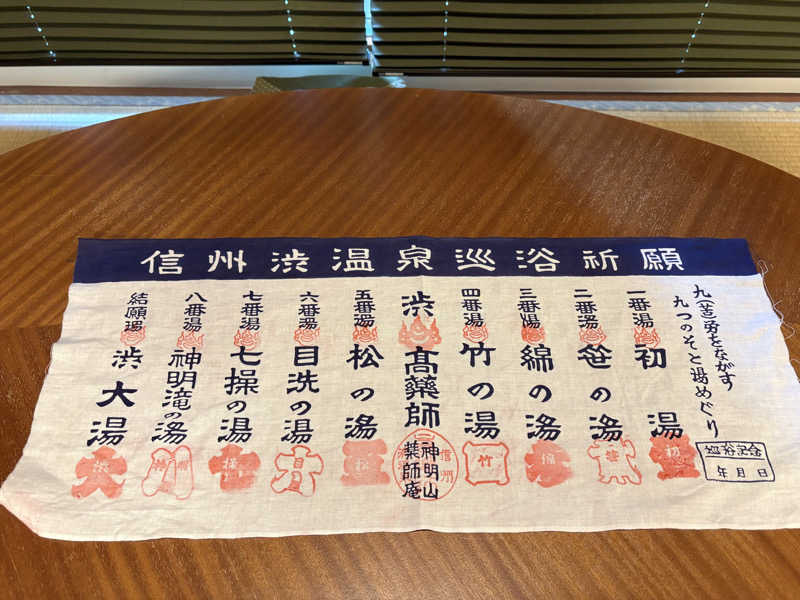 信州渋温泉巡浴祈願
九(苦)労をながす
九つのそと湯めぐり
巡浴記念
年月日
一番湯
初湯
初
二番湯
笹の湯
笹
三番湯
綿の湯
綿
四番湯
竹の湯
竹
渋高薬師
信州
神明山
薬師庵
五番湯
松の湯
松
六番湯
目洗の湯
目
七番湯
七操の湯
操
八番湯
神明滝の湯
神明
結願湯
渋大湯
渋